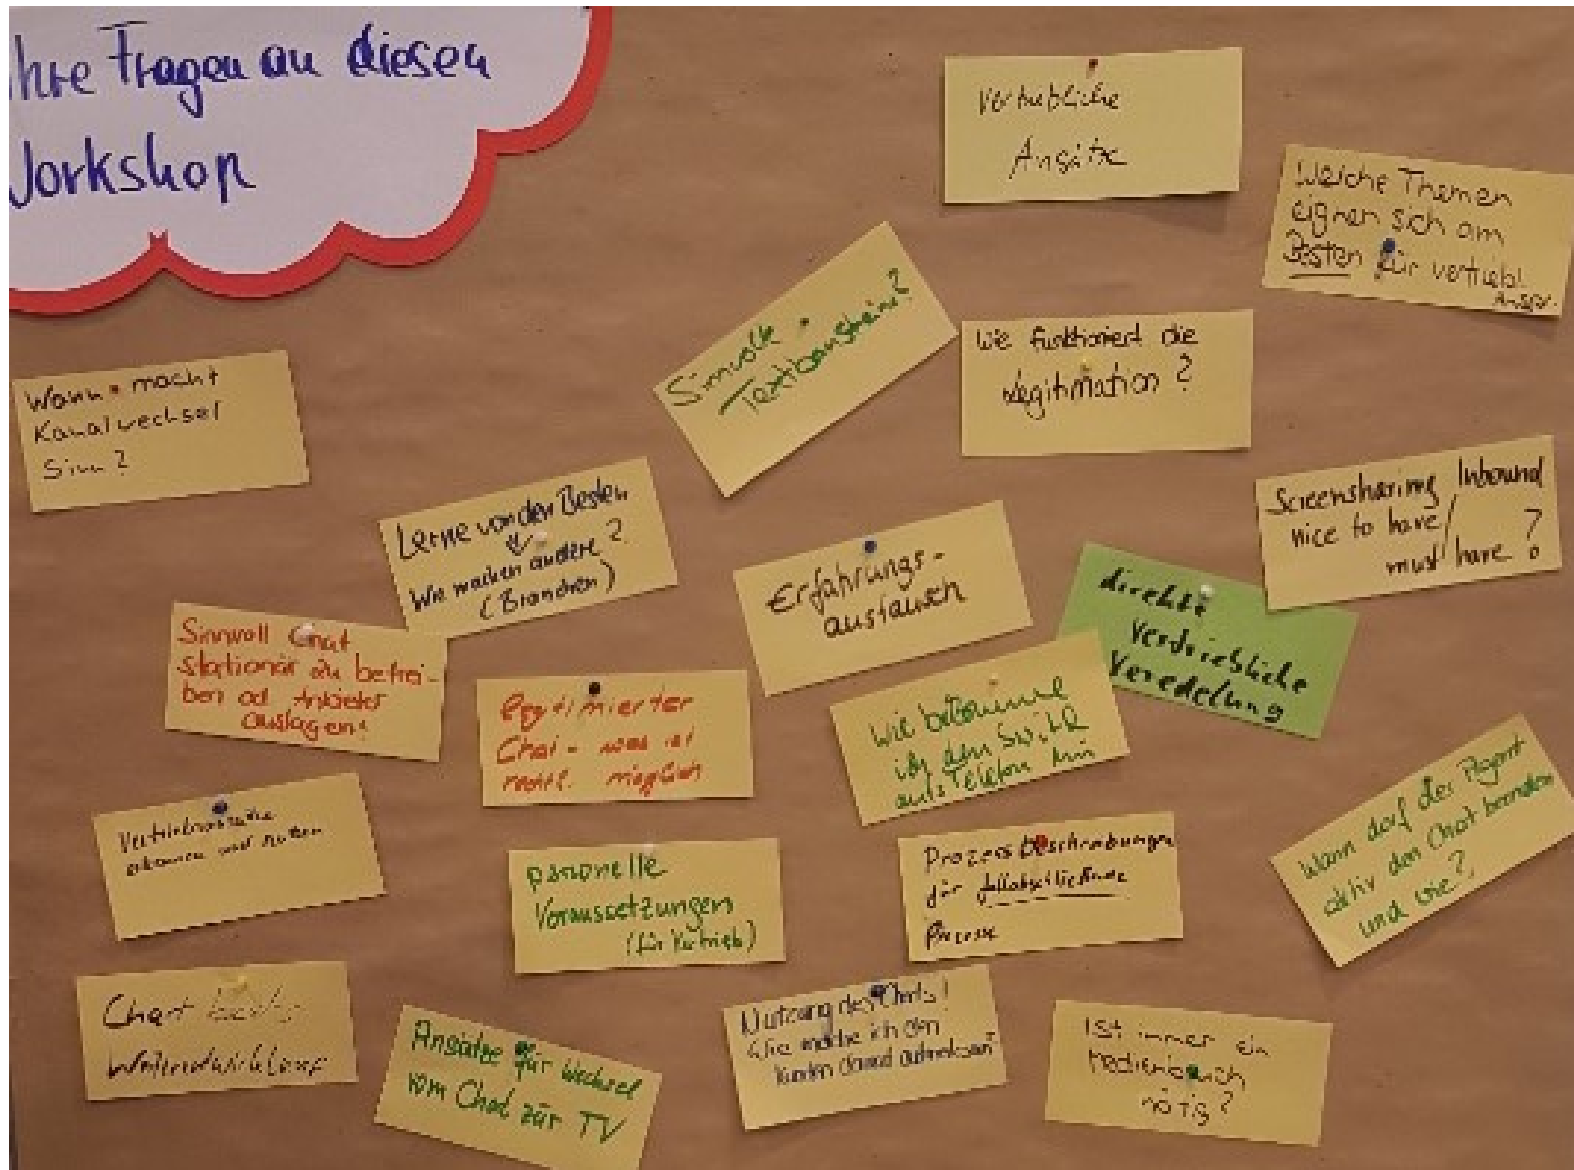 Ihre Fragen an diesen
Workshop
Vertriebliche
Ansätze
Welche Themen
eignen sich am
Besten für vertriebl.
Sinnvolle
Textbausteine?
Wie funktioniert die
Legitimation?
Wann macht
Kanalwechsel
Sinn?
Lerne von den Besten
Wie machen andere?
(Branchen)
Screensharing Inbound
nice to have/
must have?
Erfahrungs-
austausch
direkte
vertriebliche
Veredelung
Sinnvoll Chat
stationär zu betrei-
ben od Anbieter
auslagern?
legitimierter
Chat - was ist
rechtl. möglich
Wie bekomme
ich den Switch
aufs Telefon hin
Wann darf der Agent
aktiv den Chat beenden
und wie?
Vertriebsansätze
erkennen und nutzen
personelle
Voraussetzungen
(für Vertrieb)
Prozessbeschreibungen
für fallabschließende
Prozesse
Chart
Ansätze für Wechsel
vom Chat zur TV
Nutzung des Chats!
Wie mache ich den
Kunden darauf aufmerksam?
Ist immer ein
Medienbruch
nötig?